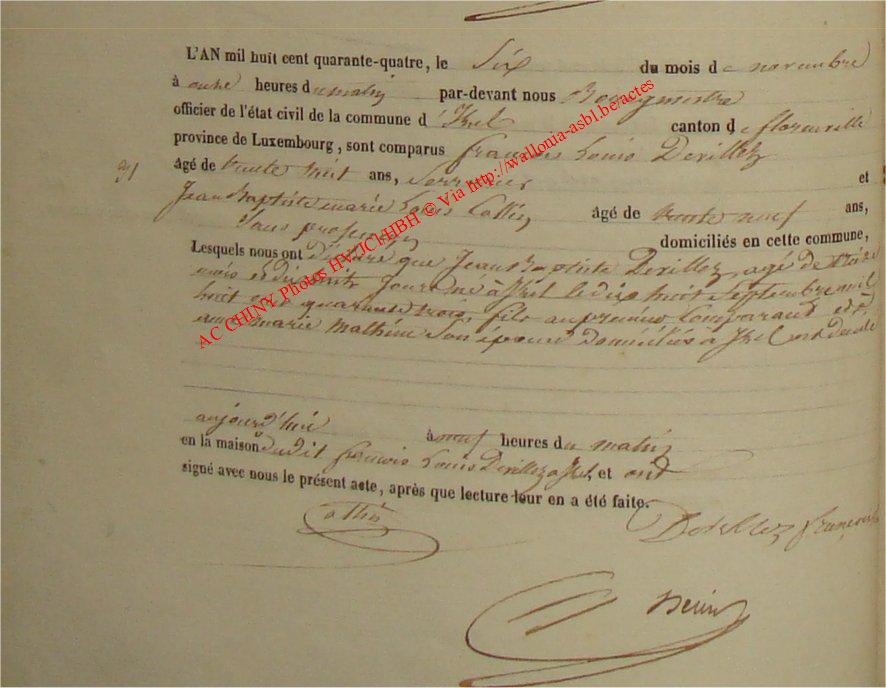 L'AN mil huit cent quarante-quatre, le Six du mois de novembre
à onze heures du matin par-devant nous Bourgmestre
officier de l'état civil de la commune d'Izel canton de florenville
province de Luxembourg, sont comparus françois Louis Devillez
âgé de trente huit ans, Serrurier et
Jean Baptiste marie Louis âgé de trente neuf ans,
Sans profession domiciliés en cette commune,
Lesquels nous ont déclaré que Jean Baptiste Devillez, agé de treize
mois et dix huit jours né à Izel le dix huit Septembre mil
huit cent quarante trois, fils au premier Comparant et à
anne marie mathieu Son épouse domiciliés à Izel est décédé
aujourd'hui à neuf heures du matin
en la maison dudit françois Louis Devillez à Izel, et ont
signé avec nous le présent acte, après que lecture leur en a été faite.
Devillez françois
AC CHINY Photos HV/JCl/HBH © Via http://wallonia-asbl.be/actes